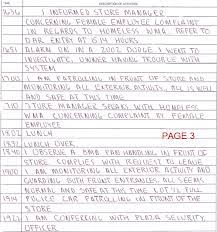 TIME DESCRIPTION OF ACTIVITIES
1636 I INFORMED STORE MANAGER
CONCERNING FEMALE EMPLOYEE COMPLAINT
IN REGARDS TO HOMELESS WMA. REFER TO
DAR ENTRY AT 1614 HOURS.
1651 ALARM ON IN A 2002 DODGE. I WENT TO
INVESTIGATE, OWNER HAVING TROUBLE WITH
SYSTEM.
1700 I AM PATROLLING IN FRONT OF STORE AND
MONITORING ALL EXTERIOR ACTIVITY. ALL IS WELL
AND SAFE AT THIS TIME
1710 STORE MANAGER SPEAKS WITH HOMELESS
WMA CONCERNING COMPLAINT BY FEMALE
EMPLOYEE.
1802 LUNCH
1832 LUNCH OVER
1840 OBSERVE A BMA PAN HANDLING IN FRONT OF
STORE COMPLIES WITH REQUEST TO LEAVE
1900 I AM MONITORING ALL EXTERIOR ACTIVITY AND
GUARDING BOTH FRONT ENTRANCES. ALL SEEMS
NORMAL AND SAFE AT THIS TIME. LOT IS FULL
1914 POLICE CAR PATROLLING IN FRONT OF THE
STORE
1926 I AM CONFERRING WITH PLAZA SECURITY
OFFICER
PAGE 3